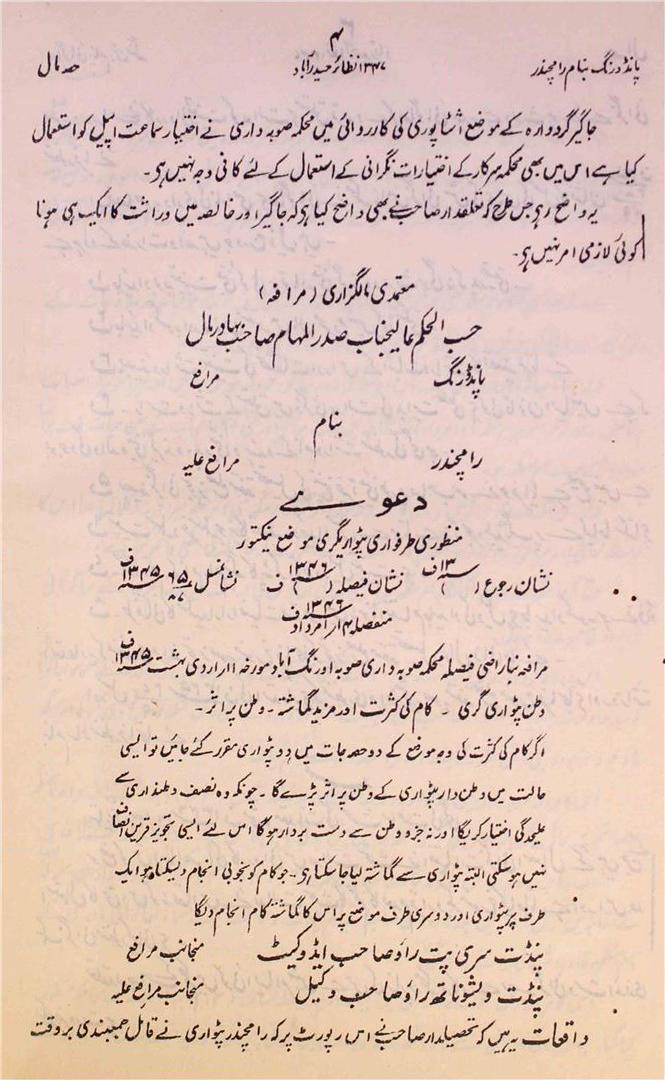 ۴
پانڈورنگ بنام رامچندر ۱۳۴۷ نظائر حیدرآباد حصہ مال
جاگیر گردوارہ کے موضع اشٹاپوری کی کارروائی میں محکمہ صوبہ داری نے اختیار سماعت اپیل کو استعمال
کیا ہے اس میں بھی محکمہ سرکار کے اختیارات نگرانی کے استعمال کے لئے کافی وجہ نہیں ہے۔
یہ واضح رہے جس طرح کہ تعلقدار صاحب نے بھی واضح کیا ہے کہ جاگیر اور خالصہ میں وراثت کا ایک ہی ہونا
کوئی لازمی امر نہیں ہے۔
معتمدی مالگزاری (مرافعہ)
حسب الحکم عالیجناب صدر المہام صاحب بہادر مال
پانڈورنگ مرافع
بنام
رامچندر مرافع علیہ
دعوے
منظوری طرفواری پٹواریگری موضع نیکتور
نشان رجوع ( ۱۳ ف نشان فیصلہ ( ) ۱۳۴۶ ف نشانمثل ۶۵/۸۷ ۱۳۴۵ف
منفصلہ ۱۴ امرداد ۱۳۴۶ف
مرافعہ بناراضی فیصلہ محکمہ صوبہ داری صوبہ اورنگ آباد مورخہ ۱۱ اردی بہشت ۱۳۴۵ف
وطن پٹواری گری ۔ کام کی کثرت اور مزید گماشتہ ۔ وطن پر اثر ۔
اگر کام کی کثرت کی وجہ موضع کے دو حصہ جات میں دو پٹواری مقرر کئے جائیں تو ایسی
حالت میں وطن دار پٹواری کے وطن پر اثر پڑے گا ۔ چونکہ وہ نصف وطنداری سے
علیحدگی اختیار کریگا اور نہ جزو وطن سے دست بردار ہوگا اس لئے ایسی تجویز قرین انصاف
نہیں ہوسکتی البتہ پٹواری سے گماشتہ لیا جاسکتا ہے ۔ جو کام کو بخوبی انجام دیسکتا ہو ایک
طرف پر پٹواری اور دوسری طرف موضع پر اس کا گماشتہ کام انجام دیگا
پنڈت سری پت راؤ صاحب ایڈوکیٹ منجانب مرافع
پنڈت ویشوناتھ راؤ صاحب وکیل منجانب مرافع علیہ
واقعات یہ ہیں کہ تحصیلدار صاحب نے اس رپورٹ پر کہ رامچندر پٹواری نے قائل جمبندی بروقت